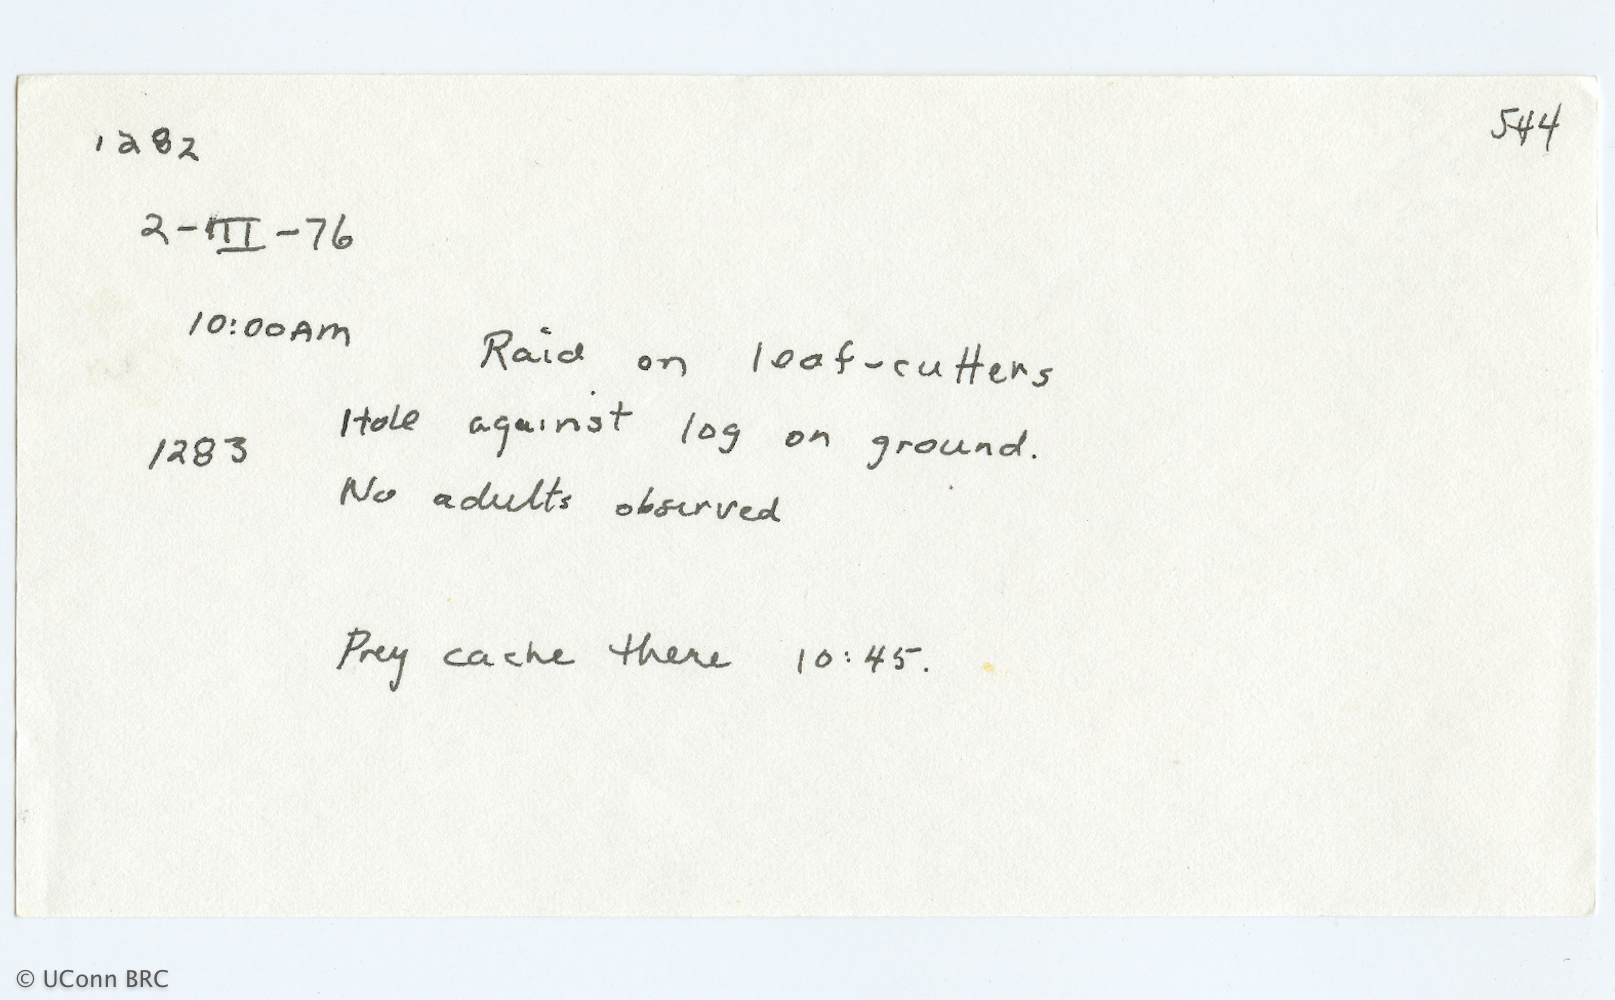 544
1282
2-III-76
10:00AM
Raid on leaf-cutters
Hole against log on ground.
1283
No adults observed
Prey cache there 10:45.
© UConn BRC